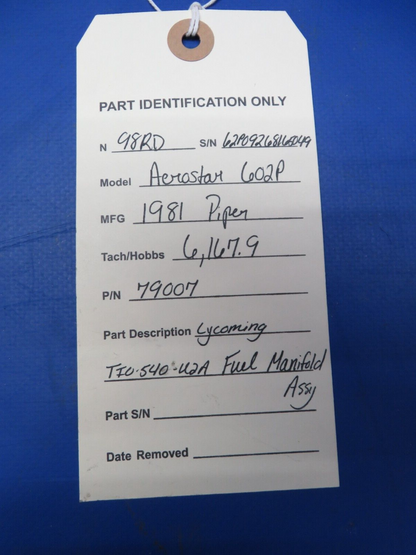 PART IDENTIFICATION ONLY
N 98RD S/N 62P09268165049
Model Aerostar 602P
MFG 1981 Piper
Tach/Hobbs 6,167.9
P/N 79007
Part Description Lycoming
TIO-540-U2A Fuel Manifold
Assy
Part S/N
Date Removed